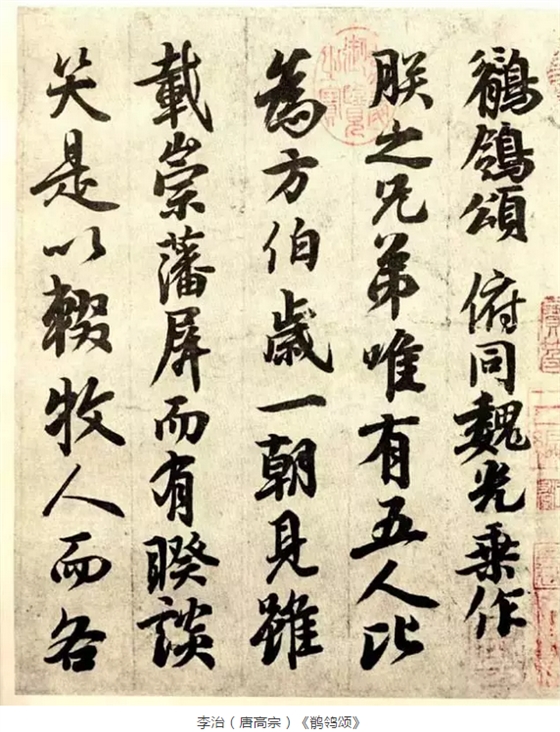 鶺鴒頌 俯同魏光乘作
朕之兄弟唯有五人比
為方伯歲一朝見雖
載崇藩屏而有睽談
笑是以輟牧人而各
李治（唐高宗）《鹡鸰颂》